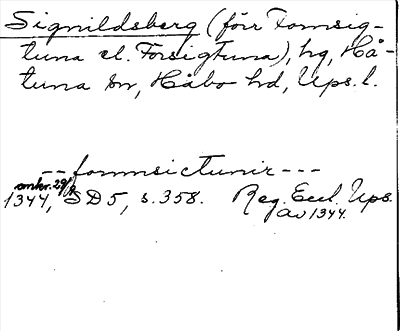 Signildsberg (förr Fornsig-
tuna el. Forsigtuna), hg, Hå-
tuna sn, Håbo hd, Ups. l.
-- fornnsictunir ---
omkr. 29/8
1344, SD 5, s. 358. Reg. Eccl. Ups.
av 1344.